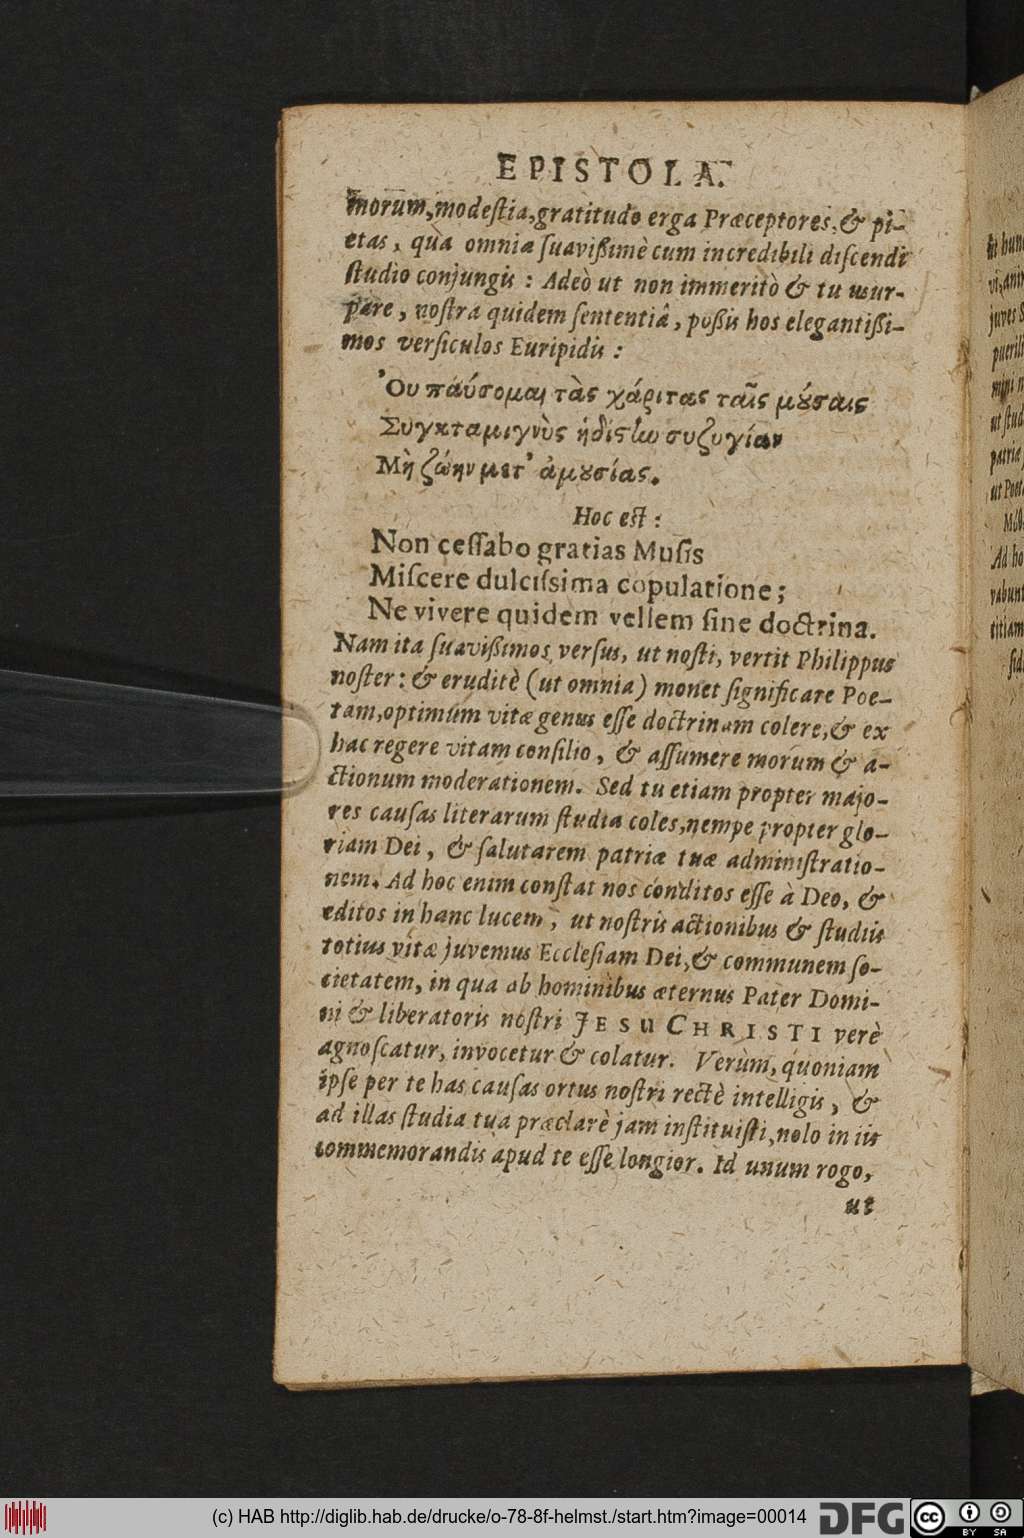 EPISTOLA.
morum, modeſtia, gratitudo erga Præceptores, & pi-
etas, qua omnia ſuavißimè cum incredibili diſcendi
ſtudio conjungis: Adeò ut non immeritò & tu uſur-
pare, noſtra quidem ſententiâ, poßis hos elegantißi-
mos verſiculos Euripidis:
Ὀυ παύσομαι τὰς χάριτας ταῖς μούσαις
Συγκταμιγνὺς ἡδίστω συζυγίαν
Μὴ ζώην μετ’ ἀμουσίας.
Hoc est:
Non ceſſabo gratias Muſis
Miſcere dulciſsima copulatione;
Ne vivere quidem vellem ſine doctrina.
Nam ita ſuavißimos verſus, ut noſti, vertit Philippus
noſter: & eruditè (ut omnia) monet ſignificare Poe-
tam, optimum vitæ genus eſſe doctrinam colere, & ex
hac regere vitam conſilio, & aſſumere morum & a-
ctionum moderationem. Sed tu etiam propter majo-
res cauſas literarum ſtudia coles, nempe propter glo-
riam Dei, & ſalutarem patriæ tuæ adminiſtratio-
nem. Ad hoc enim conſtat nos conditos eſſe à Deo, &
editos in hanc lucem, ut noſtris actionibus & ſtudiis
totius vitæ juvemus Eccleſiam Dei, & communem ſo-
cietatem, in qua ab hominibus æternus Pater Domi-
ni & liberatoris noſtri JESU CHRISTI verè
agnoſcatur, invocetur & colatur. Verùm, quoniam
ipſe per te has cauſas ortus noſtri rectè intelligis, &
ad illas ſtudia tua præclarè jam inſtituiſti, nolo in iis
commemorandis apud te eſſe longior. Id unum rogo,
ut
(c) HAB http://diglib.hab.de/drucke/o-78-8f-helmst./start.htm?image=00014
DFG
cc BY SA